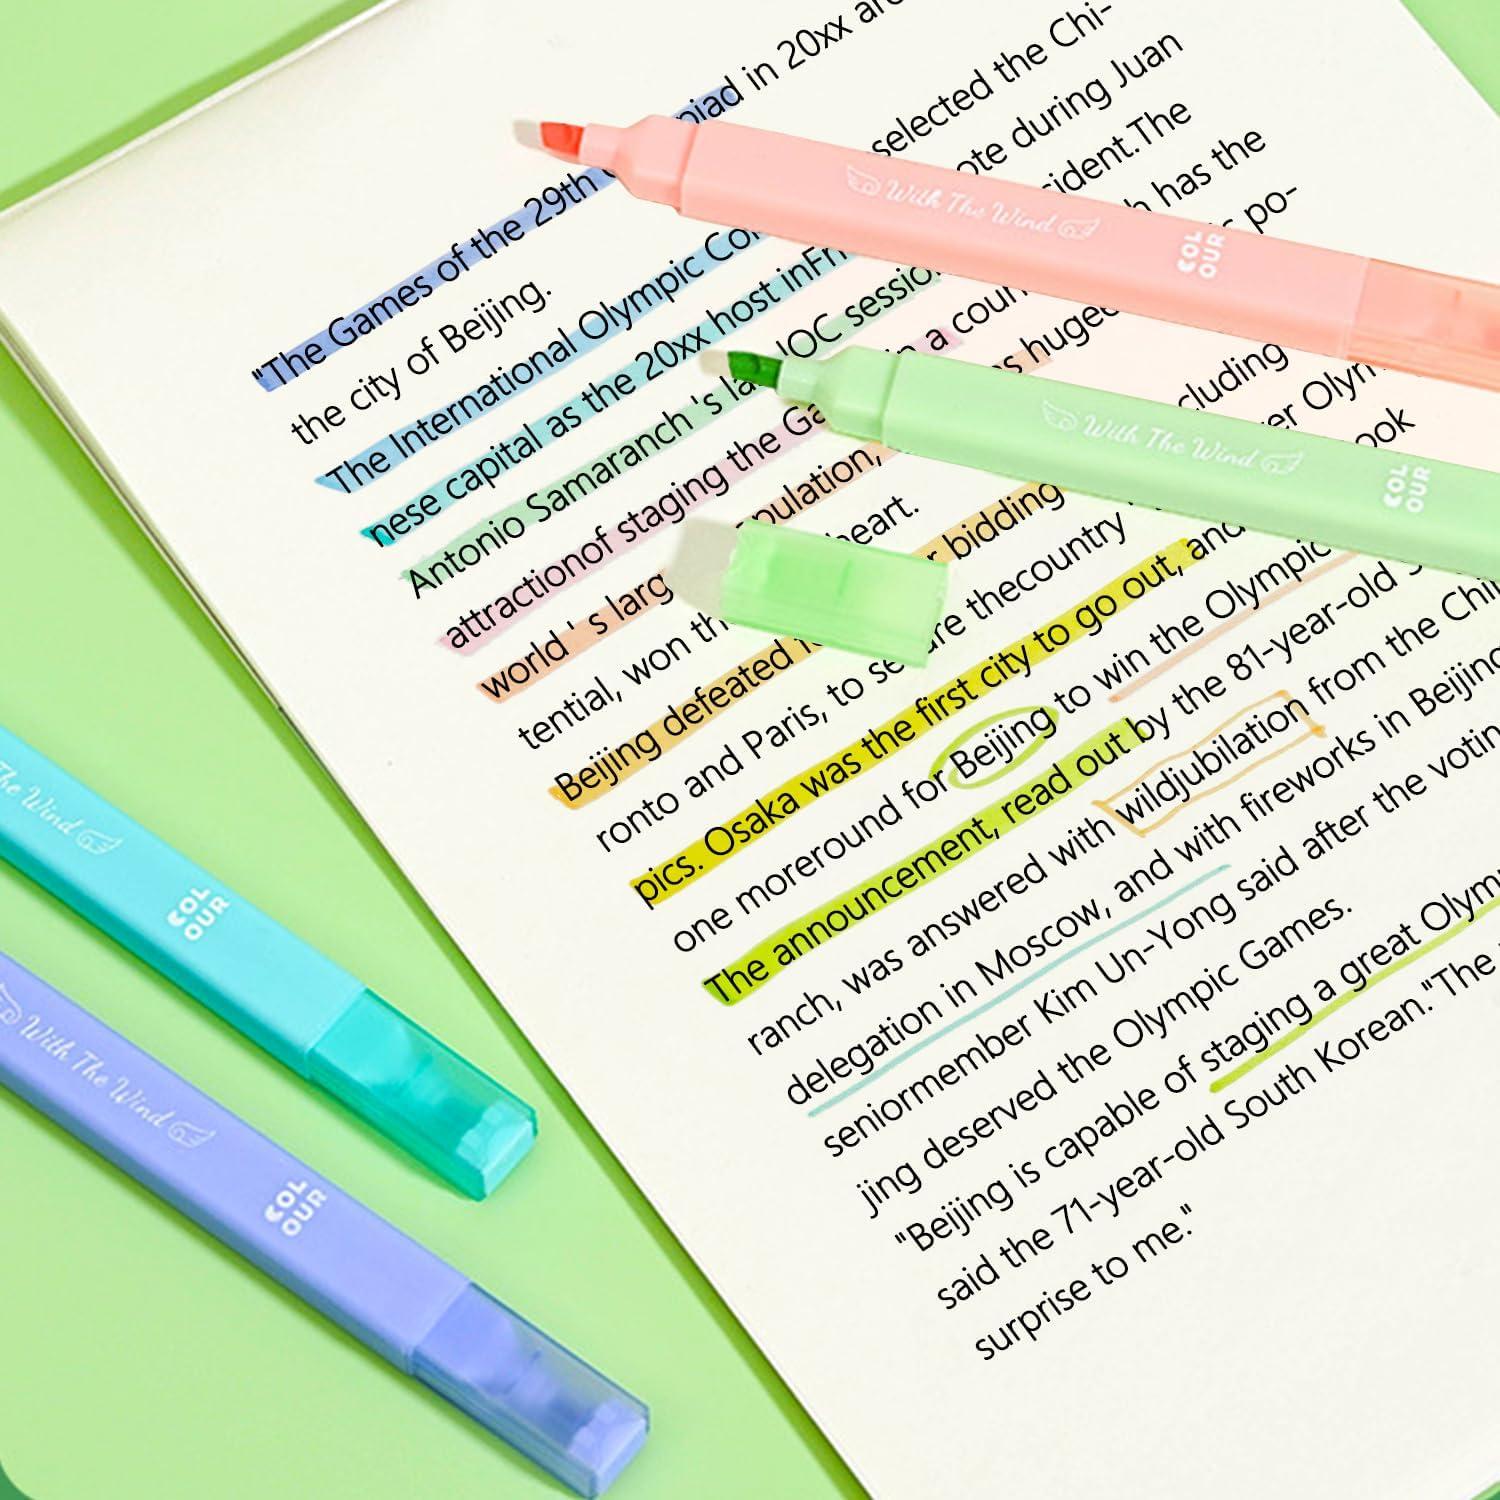 "The Games of the 29th piad in 20xx are
the city of Beijing.
The International Olympic selected the Chi-
nese capital as the 20xx host inFri ote during Juan
Antonio Samaranch 's la IOC session ident.The
attractionof staging the Ga in a coun has the
world ' s larg pulation, as huge po-
tential, won th heart.
Beijing defeated bidding cluding
ronto and Paris, to se re thecountry
pics. Osaka was the first city to go out, and ook
one moreround for Beijing to win the Olympic
The announcement, read out by the 81-year-old
ranch, was answered with wildjubilation from the Chi
delegation in Moscow, and with fireworks in Beijing
seniormember Kim Un-Yong said after the votin
jing deserved the Olympic Games.
"Beijing is capable of staging a great Olym
said the 71-year-old South Korean."The
surprise to me."
With The Wind
COL
OUR
With The Wind
COL
OUR
The Wind
COL
OUR
With The Wind
COL
OUR